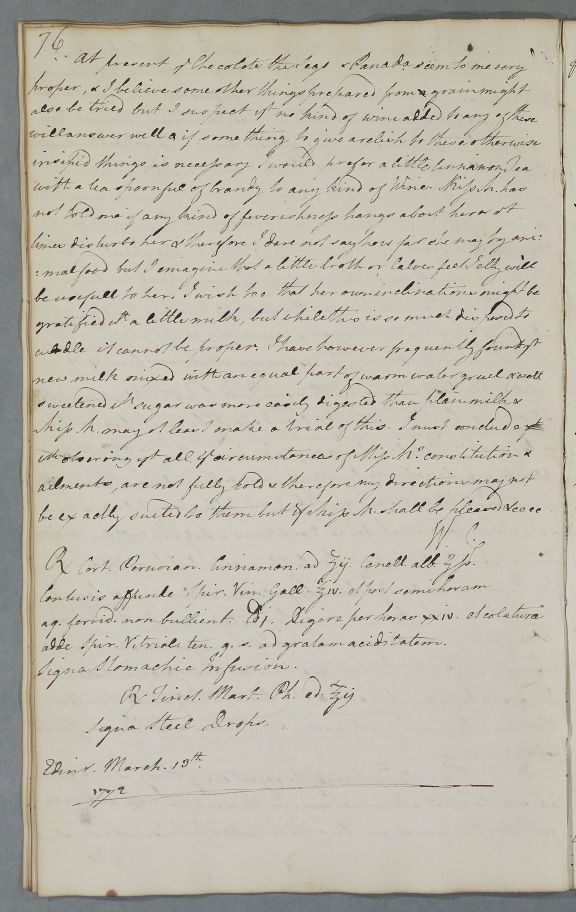 76
At present ye Chocolate the Sego & Panada seem to me very
proper, & I believe some other things prepared from a grain might
also be tried but I suspect if no kind of wine added to any of these
will answer well & if something to give a relish to these otherwise
insipid things is necessary I would prefer a little Cinnamon Tea
with a tea spoonfull of brandy to any kind of Wine. Miss K. has
not told me if any kind of feverishness hangs about her or at
times disturbs her & therefore I dare not say how far she may try ani:
:mal food but I imagine that a little broth or Calves feet Jelly will
be usefull to her. I wish too that her own inclinations might be
gratified wt a little milk, but while this is so much disposed to
curdle it cannot be proper. I have however frequently found yt
new milk mixed with an equal part of warm water gruel & well
sweetened wt sugar was more easily digested than plain milk &
Miss K. may at least make a trial of this. I must conclude
with observing yt all ye circumstances of Miss K's constitution &
ailments, are not fully told & therefore my directions may not
be exactly suited to them but if Miss K. shall be pleased &c &c
W C.
℞ Cort. Peruvian. Cinnamon. ad ʒij Canell. alb. ʒſs.
Contusis affunde Spir. Vin. Gall. ℥iv. et post semihoram
aq. fervid. non bullient. ℔j. Digere per horas xxiv. et colatura
adde Spir. Vitriol. ten. q. s. ad gratam aciditatem.
Signa Stomachic Infusion.
℞ Tinct. Mart. Ph. ed. ℥ij
Signa Steel Drops.
Edinr. March. 13th
1772